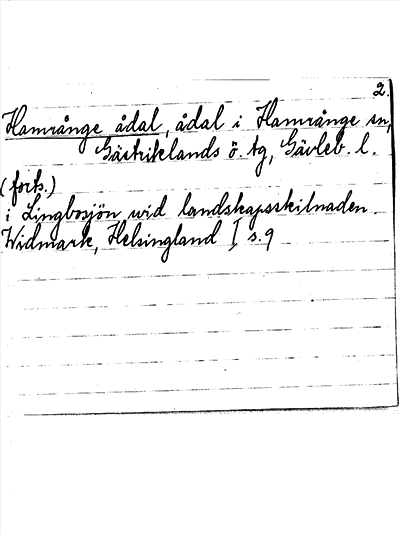 2.
Hamrånge ådal, ådal i Hamrånge sn,
Gästriklands ö. tg, Gävleb. l.
(forts.)
i Lingbosjön wid landskapsskilnaden.
Widmark, Helsingland I s. 9